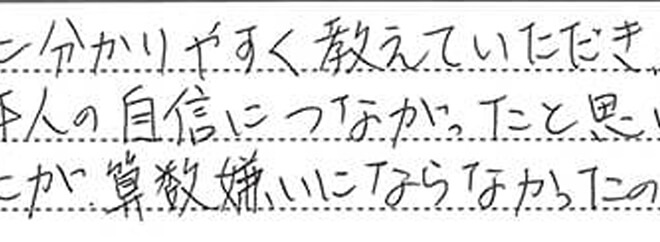 に分かりやすく教えていただき、
本人の自信につながったと思い
とが算数嫌いにならなかったの